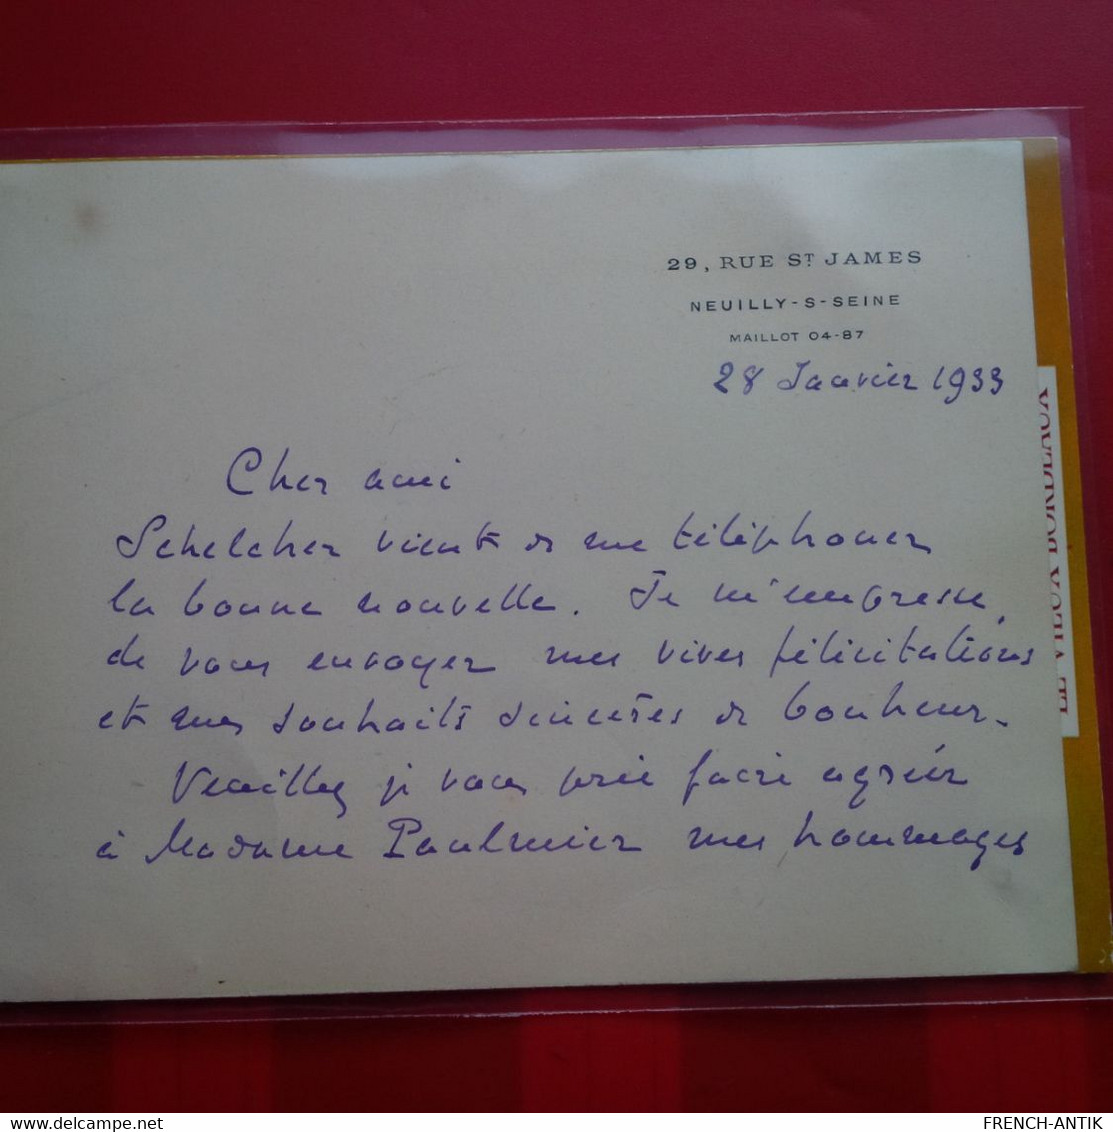 29, RUE ST JAMES
NEUILLY-S-SEINE
MAILLOT 04-87
28 Janvier 1933
Cher ami
Schelcher vient de me téléphoner
la bonne nouvelle. Je m'empresse
de vous envoyer mes vives félicitations
et mes souhaits sincères de bonheur.
Veuillez je vous prie faire agréer
à Madame Paulmier mes hommages
LE VIEUX BORDEAUX
delcampe.net
FRENCH-ANTIK